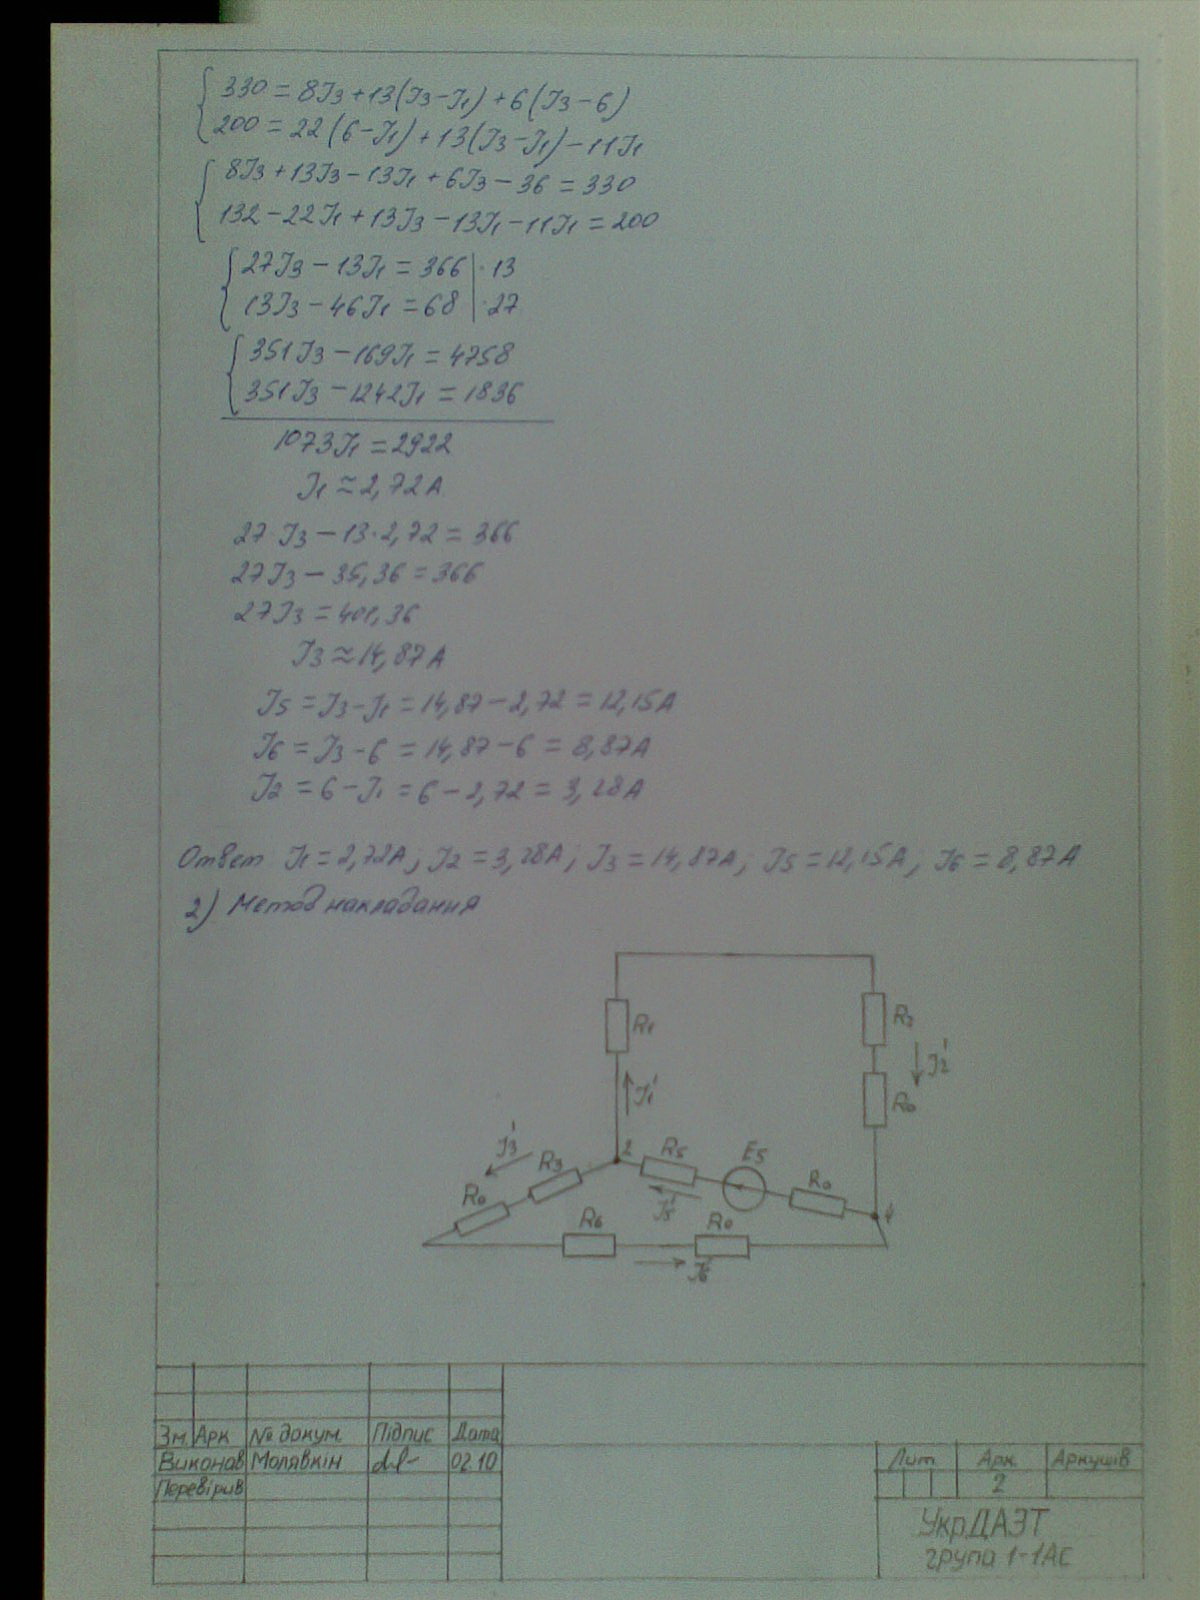 330 = 8I₃ + 13(I₃ - I₁) + 6(I₃ - 6)
200 = 22(6 - I₁) + 13(I₃ - I₁) - 11I₁
8I₃ + 13I₃ - 13I₁ + 6I₃ - 36 = 330
132 - 22I₁ + 13I₃ - 13I₁ - 11I₁ = 200
27I₃ - 13I₁ = 366 | ·13
13I₃ - 46I₁ = 68 | ·27
351I₃ - 169I₁ = 4758
351I₃ - 1242I₁ = 1836
1073I₁ = 2922
I₁ ≈ 2,72A
27·I₃ - 13·2,72 = 366
27I₃ - 35,36 = 366
27I₃ = 401,36
I₃ ≈ 14,87A
I₅ = I₃ - I₁ = 14,87 - 2,72 = 12,15A
I₆ = I₃ - 6 = 14,87 - 6 = 8,87A
I₂ = 6 - I₁ = 6 - 2,72 = 3,28A
Ответ I₁ = 2,72A; I₂ = 3,28A; I₃ = 14,87A; I₅ = 12,15A; I₆ = 8,87A
2) Метод накладання
R₁
R₂
I₂'
R₀
I₁'
I₃'
R₃
2
R₅
E₅
R₀
R₀
I₅'
4
R₆
R₀
I₆'
Зм. Арк № докум. Підпис Дата
Виконав Молявкін 02.10
Перевірив
Лит. Арк. Аркушів
2
УкрДАЗТ
група 1-1АС